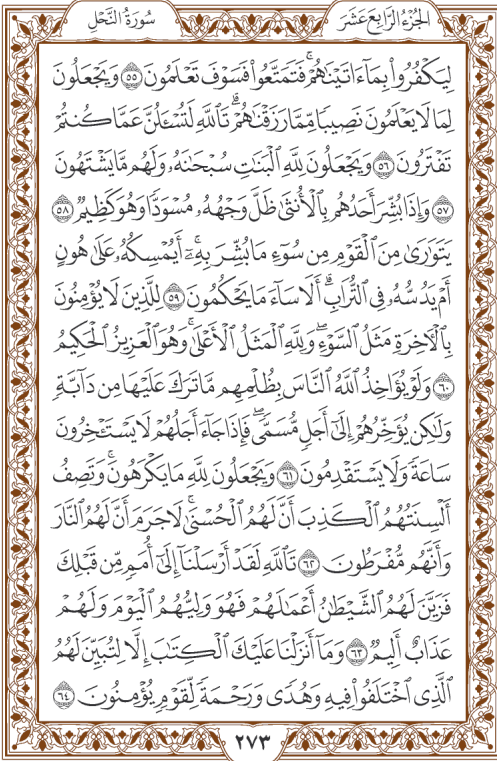 الجُزْءُ الرَّابِعَ عَشَرَ
سُورَةُ النَّحْلِ
لِيَكْفُرُوا۟ بِمَآ ءَاتَيْنَٰهُمْ ۚ فَتَمَتَّعُوا۟ فَسَوْفَ تَعْلَمُونَ ٥٥ وَيَجْعَلُونَ
لِمَا لَا يَعْلَمُونَ نَصِيبًا مِّمَّا رَزَقْنَٰهُمْ ۗ تَٱللَّهِ لَتُسْـَٔلُنَّ عَمَّا كُنتُمْ
تَفْتَرُونَ ٥٦ وَيَجْعَلُونَ لِلَّهِ ٱلْبَنَٰتِ سُبْحَٰنَهُۥ ۙ وَلَهُم مَّا يَشْتَهُونَ
٥٧ وَإِذَا بُشِّرَ أَحَدُهُم بِٱلْأُنثَىٰ ظَلَّ وَجْهُهُۥ مُسْوَدًّا وَهُوَ كَظِيمٌ ٥٨
يَتَوَٰرَىٰ مِنَ ٱلْقَوْمِ مِن سُوٓءِ مَا بُشِّرَ بِهِۦٓ ۚ أَيُمْسِكُهُۥ عَلَىٰ هُونٍ
أَمْ يَدُسُّهُۥ فِى ٱلتُّرَابِ ۗ أَلَا سَآءَ مَا يَحْكُمُونَ ٥٩ لِلَّذِينَ لَا يُؤْمِنُونَ
بِٱلْـَٔاخِرَةِ مَثَلُ ٱلسَّوْءِ ۖ وَلِلَّهِ ٱلْمَثَلُ ٱلْأَعْلَىٰ ۚ وَهُوَ ٱلْعَزِيزُ ٱلْحَكِيمُ
٦٠ وَلَوْ يُؤَاخِذُ ٱللَّهُ ٱلنَّاسَ بِظُلْمِهِم مَّا تَرَكَ عَلَيْهَا مِن دَآبَّةٍ
وَلَٰكِن يُؤَخِّرُهُمْ إِلَىٰٓ أَجَلٍ مُّسَمًّى ۖ فَإِذَا جَآءَ أَجَلُهُمْ لَا يَسْتَـْٔخِرُونَ
سَاعَةً ۖ وَلَا يَسْتَقْدِمُونَ ٦١ وَيَجْعَلُونَ لِلَّهِ مَا يَكْرَهُونَ ۚ وَتَصِفُ
أَلْسِنَتُهُمُ ٱلْكَذِبَ أَنَّ لَهُمُ ٱلْحُسْنَىٰ ۖ لَا جَرَمَ أَنَّ لَهُمُ ٱلنَّارَ
وَأَنَّهُم مُّفْرَطُونَ ٦٢ تَٱللَّهِ لَقَدْ أَرْسَلْنَآ إِلَىٰٓ أُمَمٍ مِّن قَبْلِكَ
فَزَيَّنَ لَهُمُ ٱلشَّيْطَٰنُ أَعْمَٰلَهُمْ فَهُوَ وَلِيُّهُمُ ٱلْيَوْمَ وَلَهُمْ
عَذَابٌ أَلِيمٌ ٦٣ وَمَآ أَنزَلْنَا عَلَيْكَ ٱلْكِتَٰبَ إِلَّا لِتُبَيِّنَ لَهُمُ
ٱلَّذِى ٱخْتَلَفُوا۟ فِيهِ ۙ وَهُدًى وَرَحْمَةً لِّقَوْمٍ يُؤْمِنُونَ ٦٤
٢٧٣